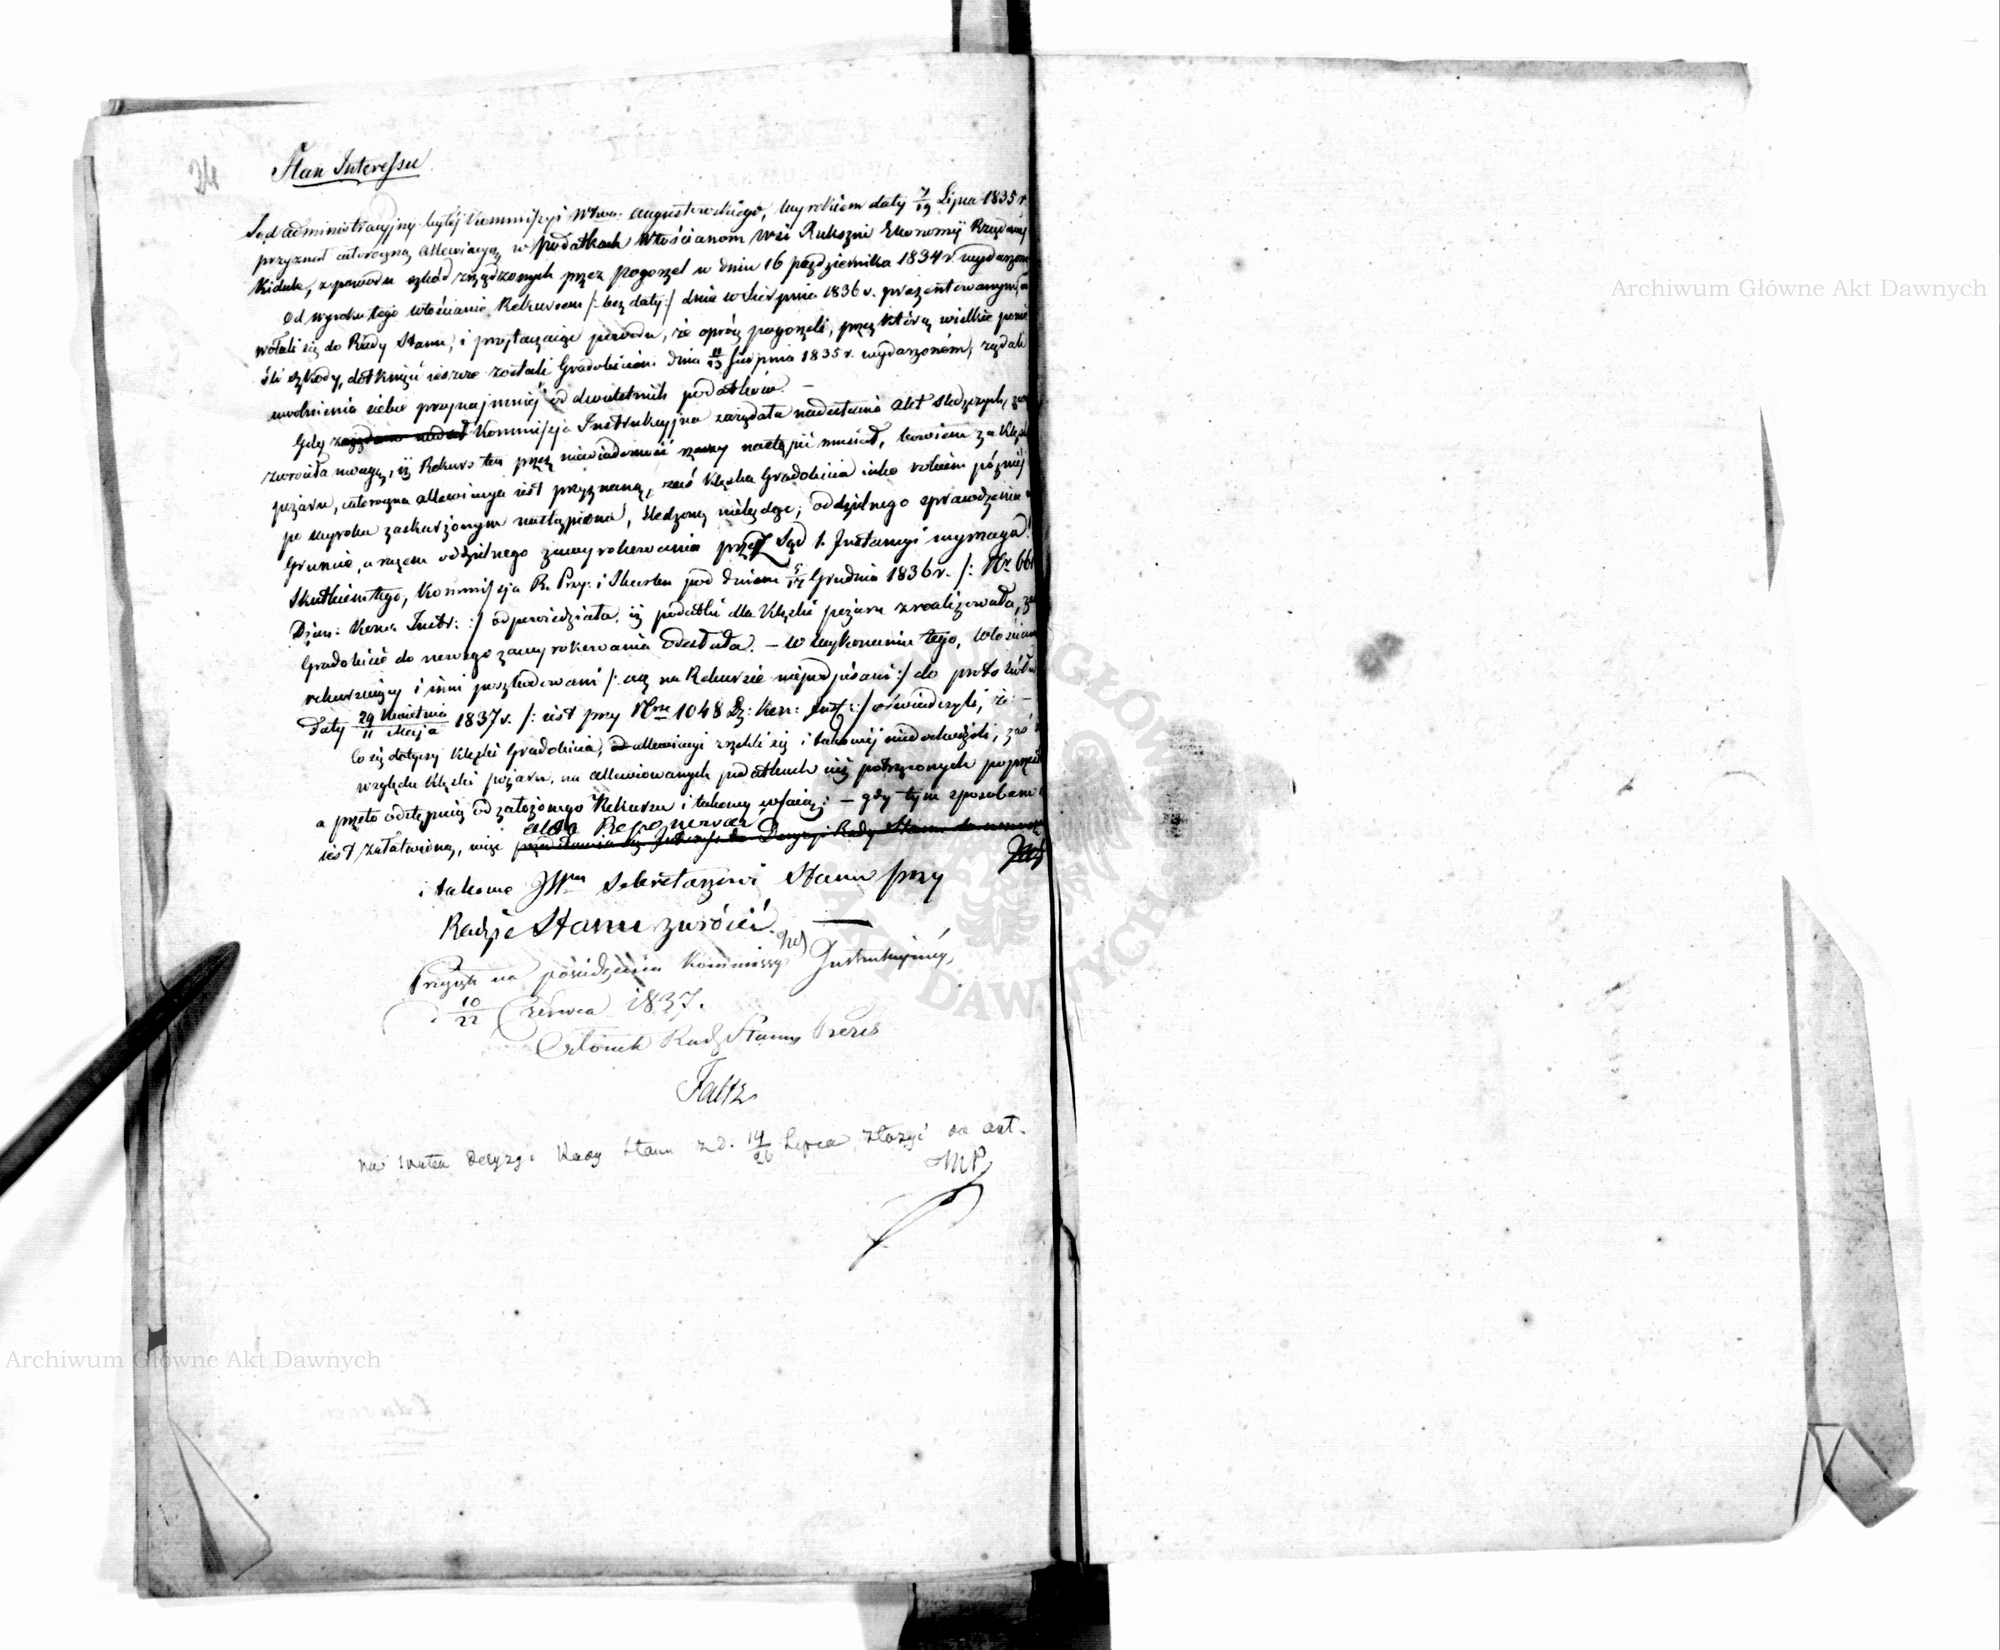 24
Stan Interessu
Sąd Administracyjny byłej Kommissyi Wtwa Augustowskiego, Wyrokiem daty 7/19 Lipca 1835 r.
przyznał całoroczną allewiacyą w podatkach Włościanom Wsi Rukszni Ekonomij Rządowej
Kidule, z powodu szkód zrządzonych przez pogorzel w dniu 16 października 1834 r. wydarzoną
Od wyroku tego Włościanie Rekursem /: bez daty :/ dnia Sierpnia 1836 r. prezentowanym, od
wołali się do Rady Stanu, i przytaczając powodu, że oprócz pogorzeli, przez którą wielkie ponie
śli szkody, dotknięci jeszcze zostali Gradobiciem dnia 11/23 Sierpnia 1835 r. wydarzonem, żądali
uwolnienia siebie przynajmniej od dwuletnich podatków. —
Gdy Kommissja Instrukcyjna zażądała nadesłania Akt śledczych,
zwróciła uwagę, iż Rekurs ten przez niewiadomość nastąpić musiał, bowiem za klęskę
pożaru, całoroczna allewiacya jest przyznaną, zaś klęska Gradobicia jako rokiem później
po wyroku zaskarżonym nastąpiona, śledzoną oddzielnego sprawdzenia
Gruncie, a razem oddzielnego zawyrokowania przez Sąd 1. Instancyi wymaga.
Skutkiem tego, Kommissja R. Przy: i Skarbu pod dniem 5/17 Grudnia 1836 r. /: Nr 661
Dzien: Kom: Instr: :/ odpowiedziała, iż podatki dla klęski pożaru zrealizowała,
Gradobicie do nowego zawyrokowania odesłała. — W wykonaniu tego, Włościanie
rekurujący i inni poszkodowani /: acz na Rekursie niepodpisani :/ do protokółu
Daty 29 Kwietnia / 11 Maja 1837 r. /: jest przy Nrze 1048 Dz: Kom: Inst: :/ oświadczyli, że: —
Co się dotyczy klęski Gradobicia, od allewiacyi zrzekli się i takowej niedochodzili, zaś
względu klęski pożaru, na allewiowanych podatkach już potrąconych
a przeto odstępują od założonego Rekursu i takowy cofają: — gdy tym sposobem
jest załatwioną, więc
akta Reponować
i takowe JWmu Sekretarzowi Stanu przy
Radzie Stanu zwrócić. —
Przyjęto na posiedzeniu Kommissyi Instrukcyjnéj,
d. 10/22 Czerwca 1837.
Członek Rady Stanu, Prezes
Faltz
na skutek Decyzyi Rady Stanu z d. 14/26 Lipca złożyć do akt.
MP
Archiwum Główne Akt Dawnych
Archiwum Główne Akt Dawnych